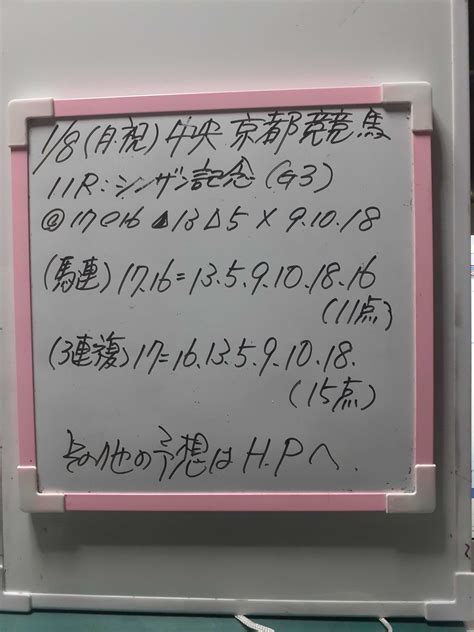 1/8(月.祝)中央京都競馬
11R:シンザン記念(G3)
◎17○16▲13△5×9.10.18
(馬連)17.16=13.5.9.10.18.16
(11点)
(3連複)17=16.13.5.9.10.18.
(15点)
その他の予想はH.Pへ.